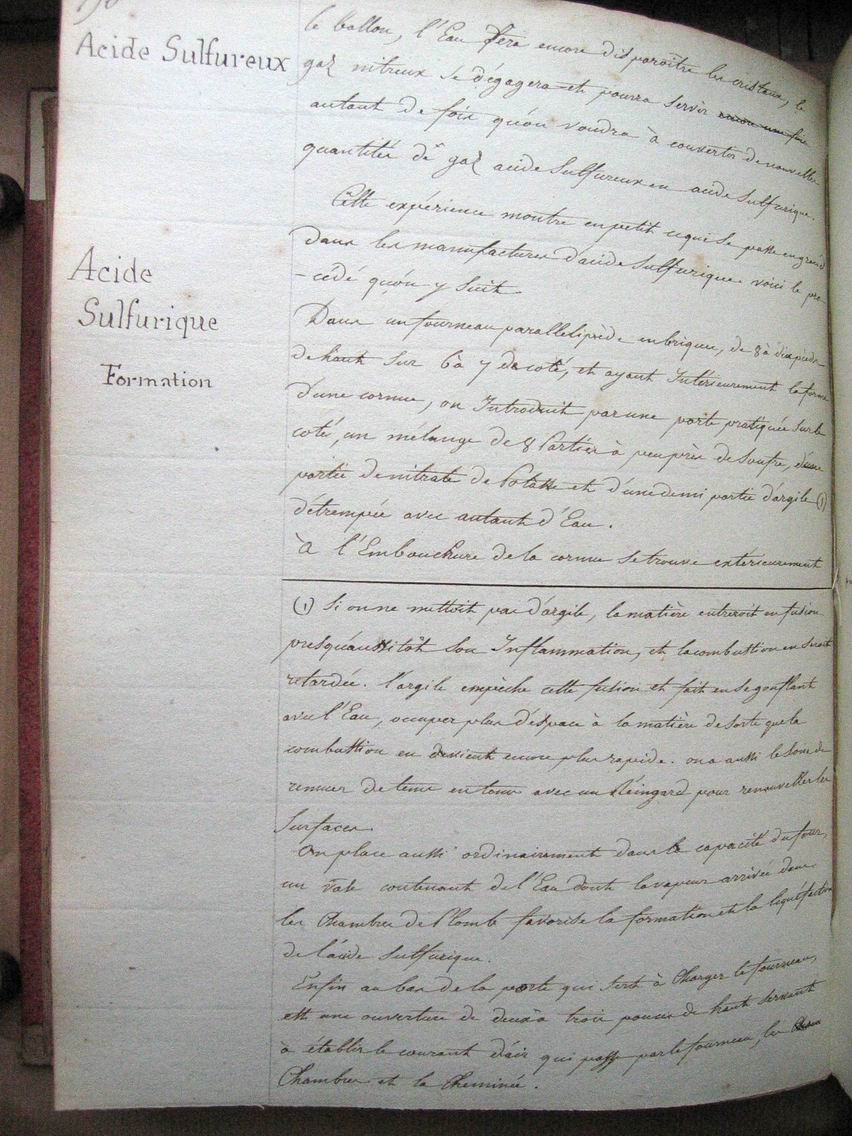 Acide Sulfureux
le ballon, l'Eau fera encore disparoître les cristaux, le
gaz nitreux se dégagera et pourra servir
autant de fois qu'on voudra à convertir de nouvelles
quantités de gaz acide Sulfureux en acide Sulfurique.
Cette expérience montre en petit ce qui se passe en grand
Acide
Sulfurique
Formation
Dans les manufactures d'acide Sulfurique. voici le pro
-cédé qu'on y Suit
Dans un fourneau parallelipipède en briques, de 8 à dix pieds
de haut Sur 6 à 7 de coté, et ayant Intérieurement la forme
d'une cornue, on Introduit par une porte pratiquée Sur le
coté, un mélange de 8 Parties à peu près de Soufre, d'une
partie de nitrate de Potasse et d'une demi partie d'argile (1)
détrempée avec autant d'Eau.
à l'Embouchure de la cornue se trouve exterieurement
(1) Si on ne mettoit pas d'argile, la matière entreroit en fusion
presqu'aussitôt Son Inflammation, et la combustion en Seroit
retardée. l'argile empèche cette fusion et fait en se gonflant
avec l'Eau, occuper plus d'espace à la matière de sorte que la
combustion en devient encore plus rapide. on a aussi le Soin de
remuer de tems en tems avec un Réingard pour renouveller les
Surfaces
On place aussi ordinairement dans la capacité du four,
un vase contenant de l'Eau dont la vapeur arrivée dans
les Chambres de Plomb favorise la formation et la liquéfaction
de l'acide Sulfurique.
Enfin au bas de la porte qui Sert à Charger le fourneau,
est une ouverture de deux à trois pouces de haut Servant
à établir le courant d'air qui passe par le fourneau, les
Chambres et la Cheminée.